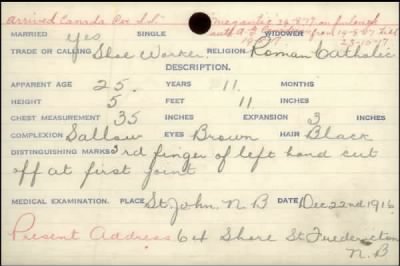 arrived Canada Per S.S. "Megantic" 29-8-17 on furlough
MARRIED Yes SINGLE WIDOWER from 19-8-17 till
TRADE OR CALLING Shoe Worker. RELIGION Roman Catholic
DESCRIPTION.
APPARENT AGE 25. YEARS 11 MONTHS
HEIGHT 5 FEET 11 INCHES
CHEST MEASUREMENT 35 INCHES EXPANSION 3 INCHES
COMPLEXION Sallow EYES Brown HAIR Black
DISTINGUISHING MARKS 3rd finger of left hand cut
off at first joint
MEDICAL EXAMINATION. PLACE St. John, N.B DATE Dec 22nd 1916
Present Address 64 Shore St. Fredericton
N.B